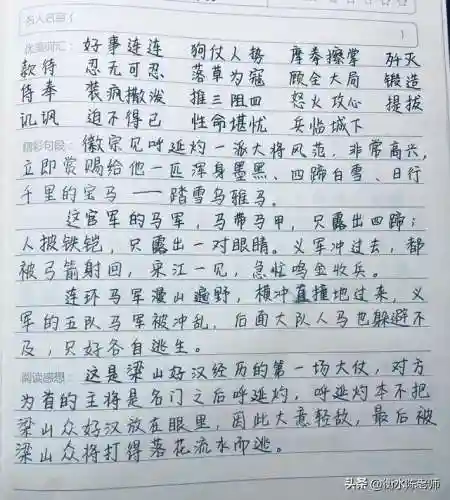 名人名言（
）
优美词汇：好事连连 狗仗人势 摩拳擦掌 歼灭
款待 忍无可忍 落草为寇 顾全大局 锻造
侍奉 装疯撒泼 推三阻四 怒火攻心 提拔
讥讽 迫不得已 性命堪忧 兵临城下
精彩句段：徽宗见呼延灼一派大将风范，非常高兴，
立即赏赐给他一匹浑身墨黑、四蹄白雪、日行
千里的宝马——踏雪乌骓马。
这官军的马军，马带马甲，只露出四蹄；
人披铁铠，只露出一对眼睛。义军冲过去，都
被弓箭射回，宋江一见，急忙鸣金收兵。
连环马军漫山遍野，横冲直撞地过来，义
军的五队马军被冲乱，后面大队人马也躲避不
及，只好各自逃生。
阅读感想：这是梁山好汉经历的第一场大仗，对方
为首的主将是名门之后呼延灼，呼延灼本不把
梁山众好汉放在眼里，因此大意轻敌，最后被
梁山众将打得落花流水而逃。
头条 @衡水陈老师